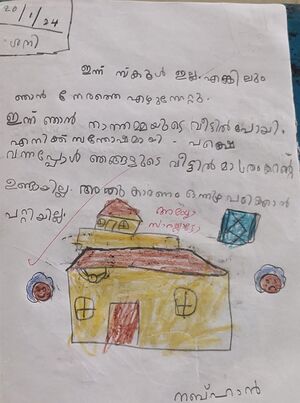 20/1/24
ശനി
ഇന്ന് സ്കൂൾ ഇല്ല. എങ്കിലും
ഞാൻ നേരത്തെ എഴുന്നേറ്റു.
ഇന്ന് ഞാൻ നാന്നമ്മയുടെ വീട്ടിൽ പോയി.
എനിക്ക് സന്തോഷമായി - പക്ഷെ
വന്നപ്പോൾ ഞങ്ങളുടെ വീട്ടിൽ മാത്രം കറന്റ്
ഉണ്ടായില്ല. അതു കാരണം ഒന്നും പഠിക്കാൻ
പറ്റിയില്ല.
അയ്യോ
നബ്ഹാൻ